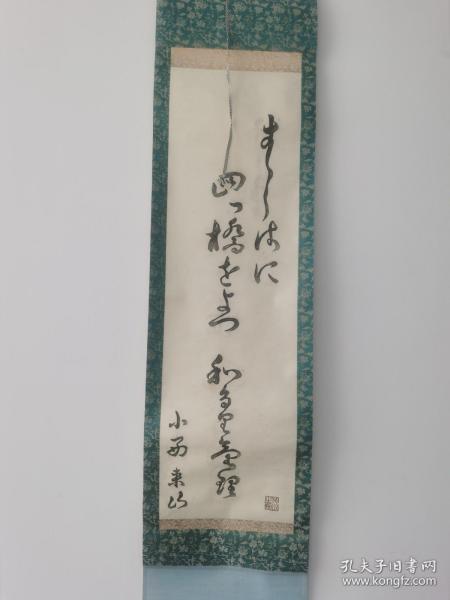 すゝしさに
四つ橋をよつ 和多里介理
小西 来山
孔夫子旧书网
www.kongfz.com